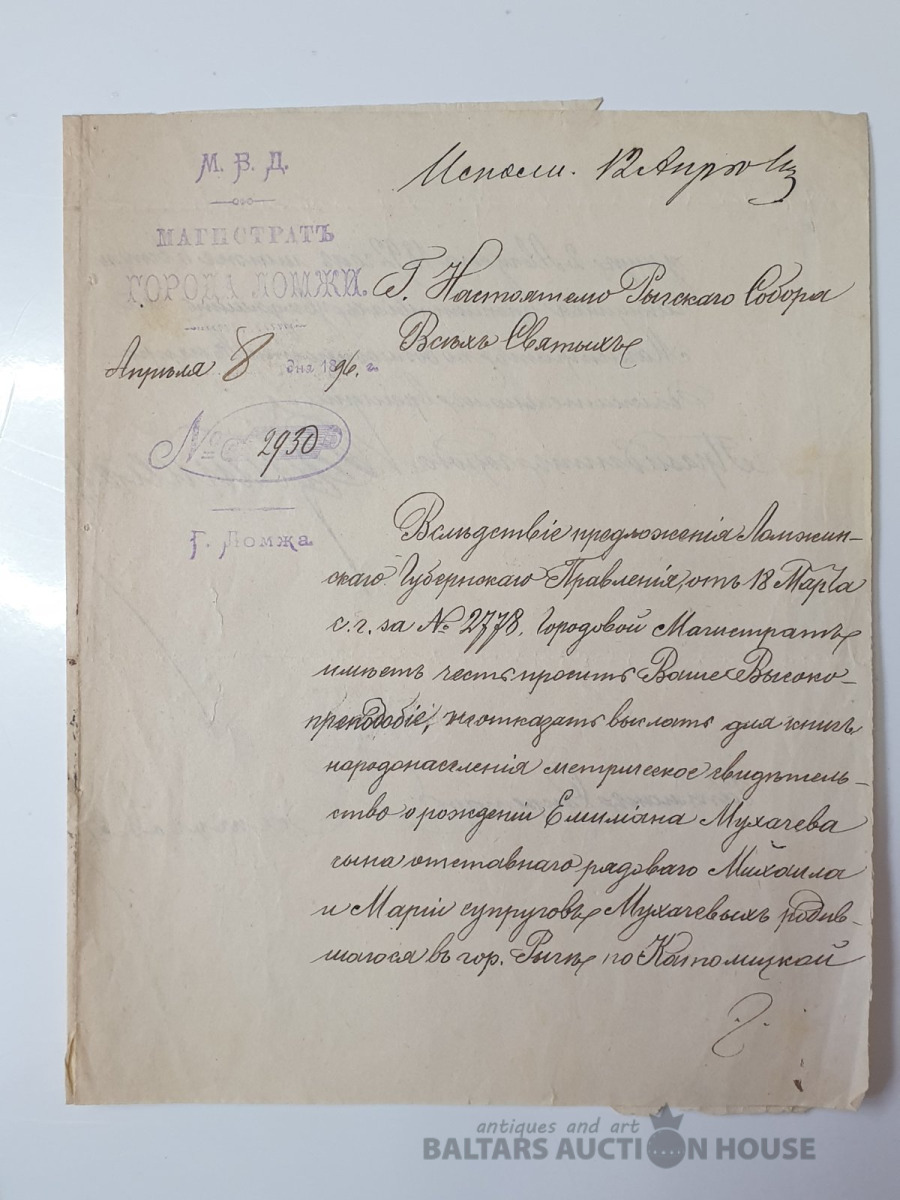 М. В. Д.
МАГИСТРАТЪ
ГОРОДА ЛОМЖИ.
Апрѣля 8 дня 1896. г.
№ 2930
Г. Ломжа
Исполн. 12 Апрѣ
Г. Настоятелю Рыжскаго Собора
Всѣхъ Святыхъ
Вслѣдствіе предложенія Ломжин-
скаго Губернскаго Правленія, отъ 18 Марта
с. г. за № 2778, Городовой Магистратъ
имѣетъ честь просить Ваше Высоко-
преподобіе, не отказать выслать для книгъ
народонаселенія метрическое свидѣтель-
ство о рожденіи Емиліана Мухачева
сына отставнаго рядоваго Михаила
и Маріи супруговъ Мухачевыхъ родив-
шагося въ гор. Рыгѣ по Католицкой
antiques and art
BALTARS AUCTION HOUSE